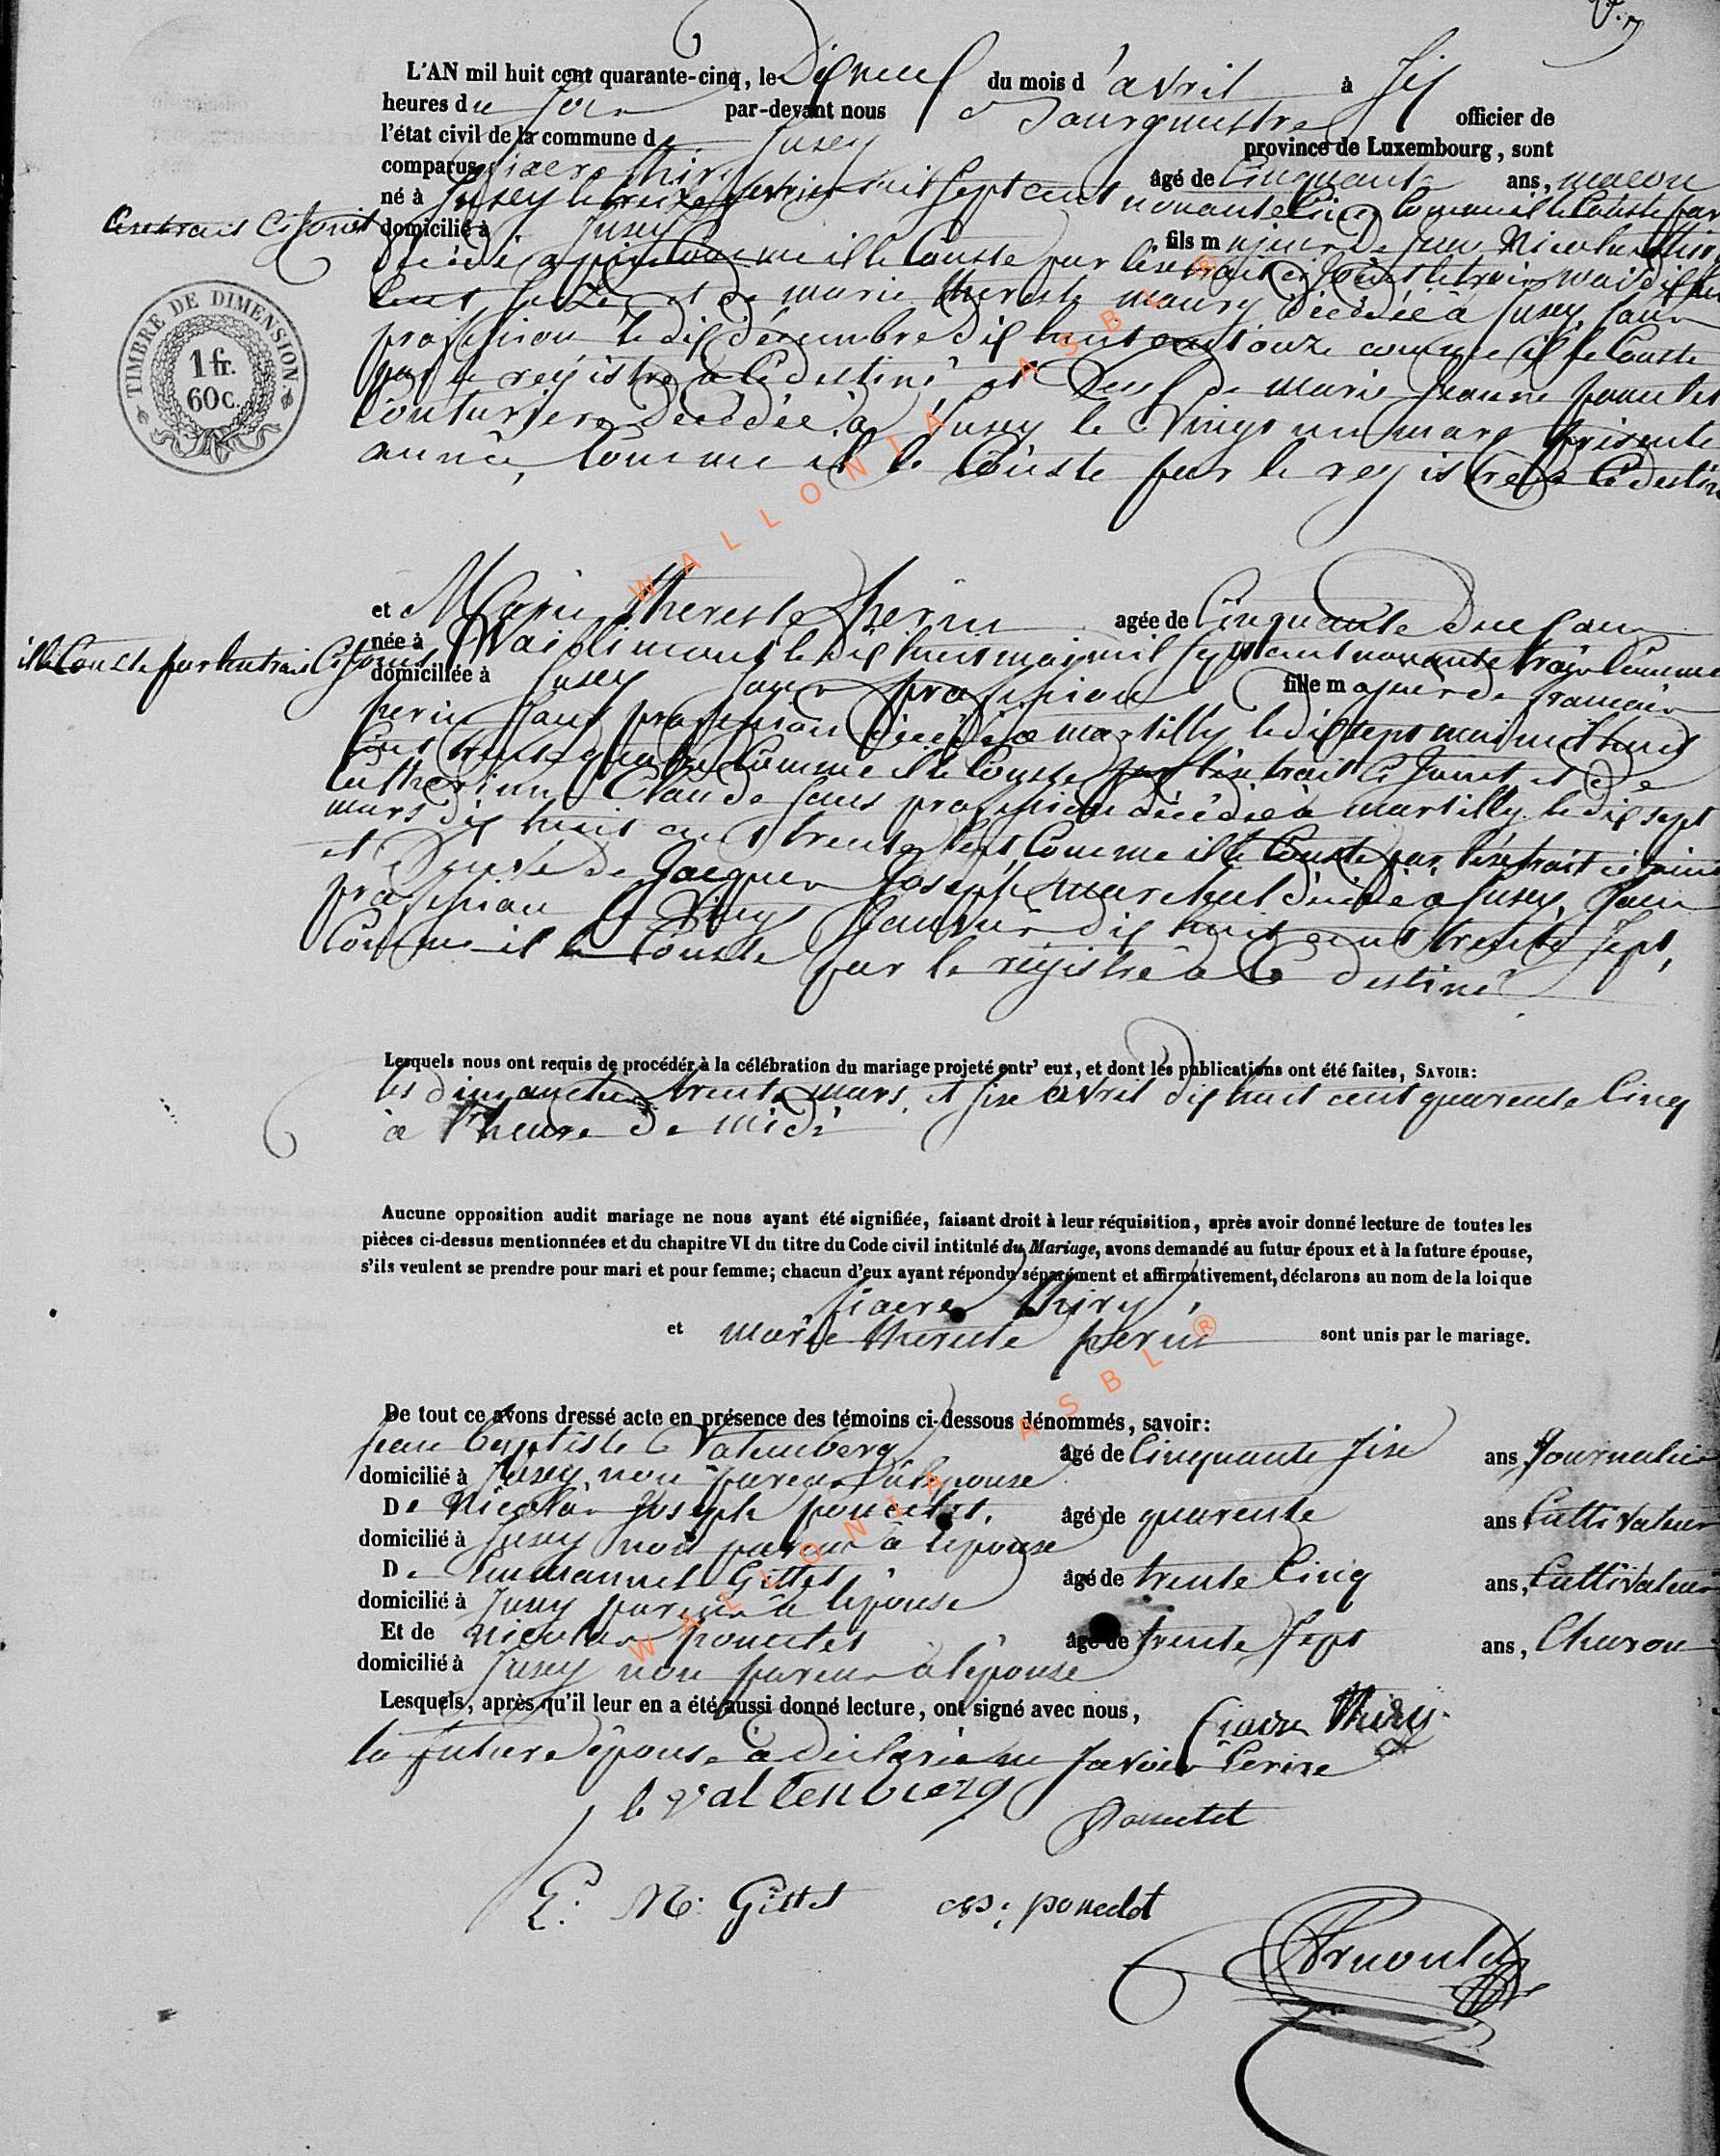 L'AN mil huit cent quarante-cinq, le Dix neuf du mois d'avril à six
heures du soir par-devant nous Bourgmestre officier de
l'état civil de la commune d Juzey province de Luxembourg, sont
comparus fiacre thiry âgé de Cinquante ans, macon
né à Jusey le treize fevrier mil sept cent novante Cinq Comme il le Conste par
l'extrait Ci joint domicilié à Jusey fils majeur de Jean Nicolas thiry
décédé a Comme il le Conste par l'extrait ci joint le trois mai dix huit
cent et de marie thereste maury décédée à Jusey, sans
profession le dix décembre dix huit cent onze comme il le Conste
par le registre à Ce destiné et veuf de marie Jeanne poncelet
Couturiere décédée à Jusey le vingt un mars présente
année, Comme il le Conste par le registre à Ce destiné
TIMBRE DE DIMENSION
1 fr.
60 c.
et Marie thereste perin agée de Cinquante Deux ans
née à le dix huit mai mil sept cent novante trois Comme
il le Conste par l'extrait Ci joint domiciliée à Jusey sans profession fille majeure de francois
perin sans profession décédé à martilly le dix sept mai mil huit
cent trente quatre Comme il le Conste par l'extrait Ci Joint et de
Catherinne Claude sans profession décédée à martilly le dix sept
mars dix huit cent trente Comme il le Conste par l'extrait ci joint
et veuve de Jacques Joseph marchal décédé a Jusey, sans
profession le vingt Janvier dix huit cent trente sept,
Comme il le Conste par le registre à Ce destiné
Lesquels nous ont requis de procéder à la célébration du mariage projeté entr' eux, et dont les publications ont été faites, SAVOIR:
les dimanches trente mars et sixe avril dix huit cent quarente Cinq
à l'heure de midi
Aucune opposition audit mariage ne nous ayant été signifiée, faisant droit à leur réquisition, après avoir donné lecture de toutes les
pièces ci-dessus mentionnées et du chapitre VI du titre du Code civil intitulé du Mariage, avons demandé au futur époux et à la future épouse,
s'ils veulent se prendre pour mari et pour femme; chacun d'eux ayant répondu séparément et affirmativement, déclarons au nom de la loi que
fiacre thiry,
et marie thereste perin sont unis par le mariage.
De tout ce avons dressé acte en présence des témoins ci-dessous dénommés, savoir:
Jean baptiste Vatemberg âgé de Cinquante sixe ans Journalier
domicilié à Jusey non parent à l'epouse
De Nicolas Joseph poncelet, âgé de quarente ans Cultivateur
domicilié à Jusey non parent à l'epouse
De Emmanuel Gittet âgé de trente Cinq ans, Cultivateur
domicilié à Jusey parent à l'épouse
Et de nicolas poncelet âgé de trente sept ans, Charon
domicilié à Jusey non parent à l'épouse
Lesquels, après qu'il leur en a été aussi donné lecture, ont signé avec nous, fiacre Thiry
la future épouse à déclaré ne savoir Ecrire
Valtenberg
Poncelet
E. M: Gittet
poncelet
Arnould
WALLONIA ASBL ®
WALLONIA ASBL ®